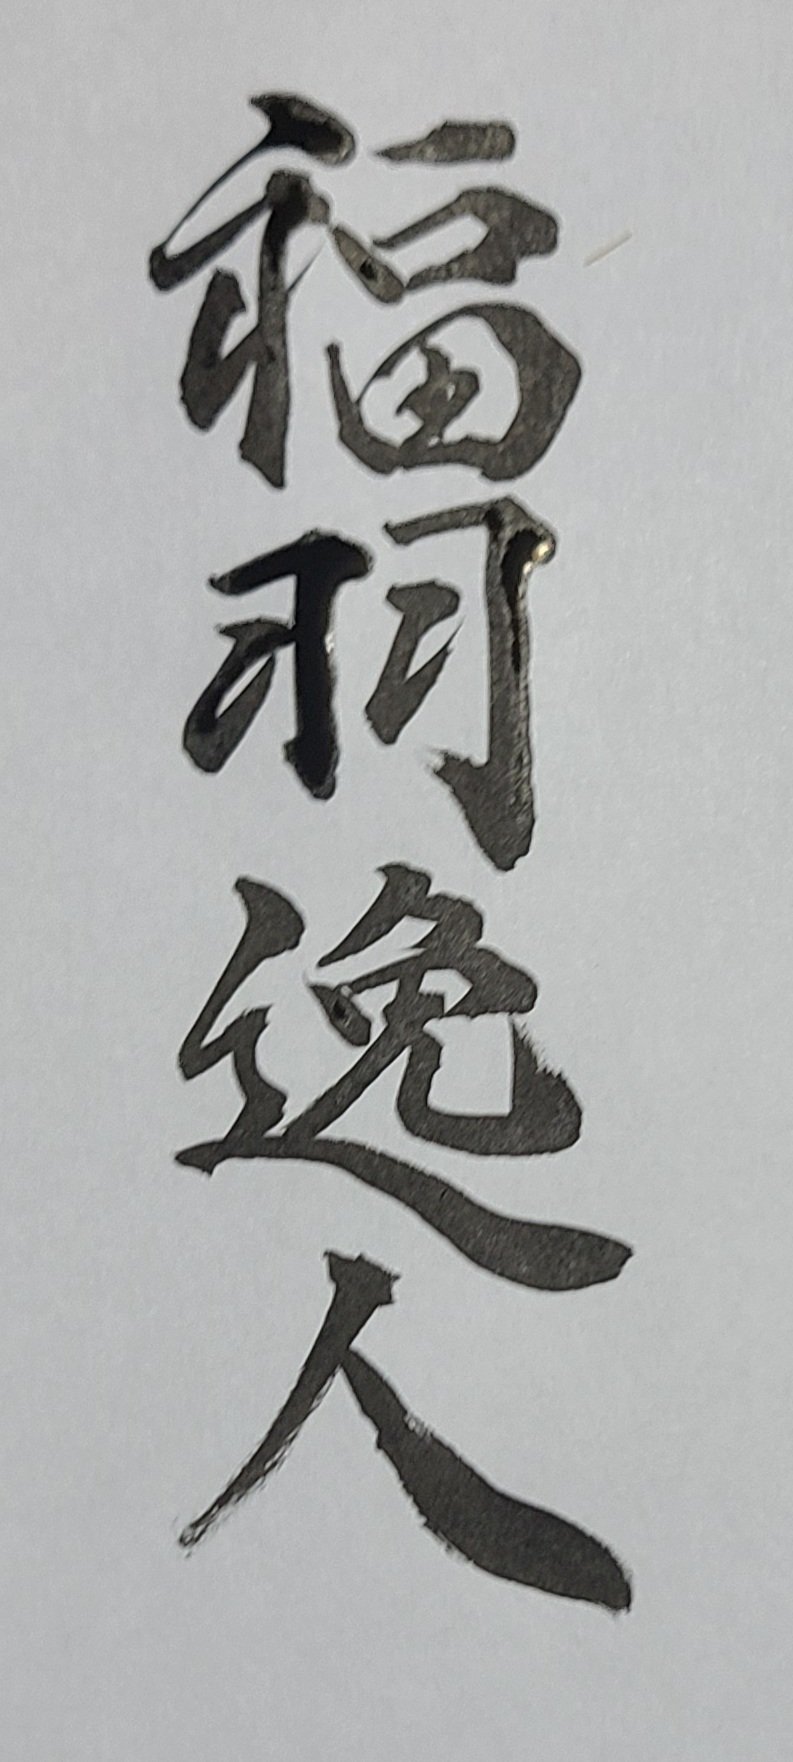 福羽逸人